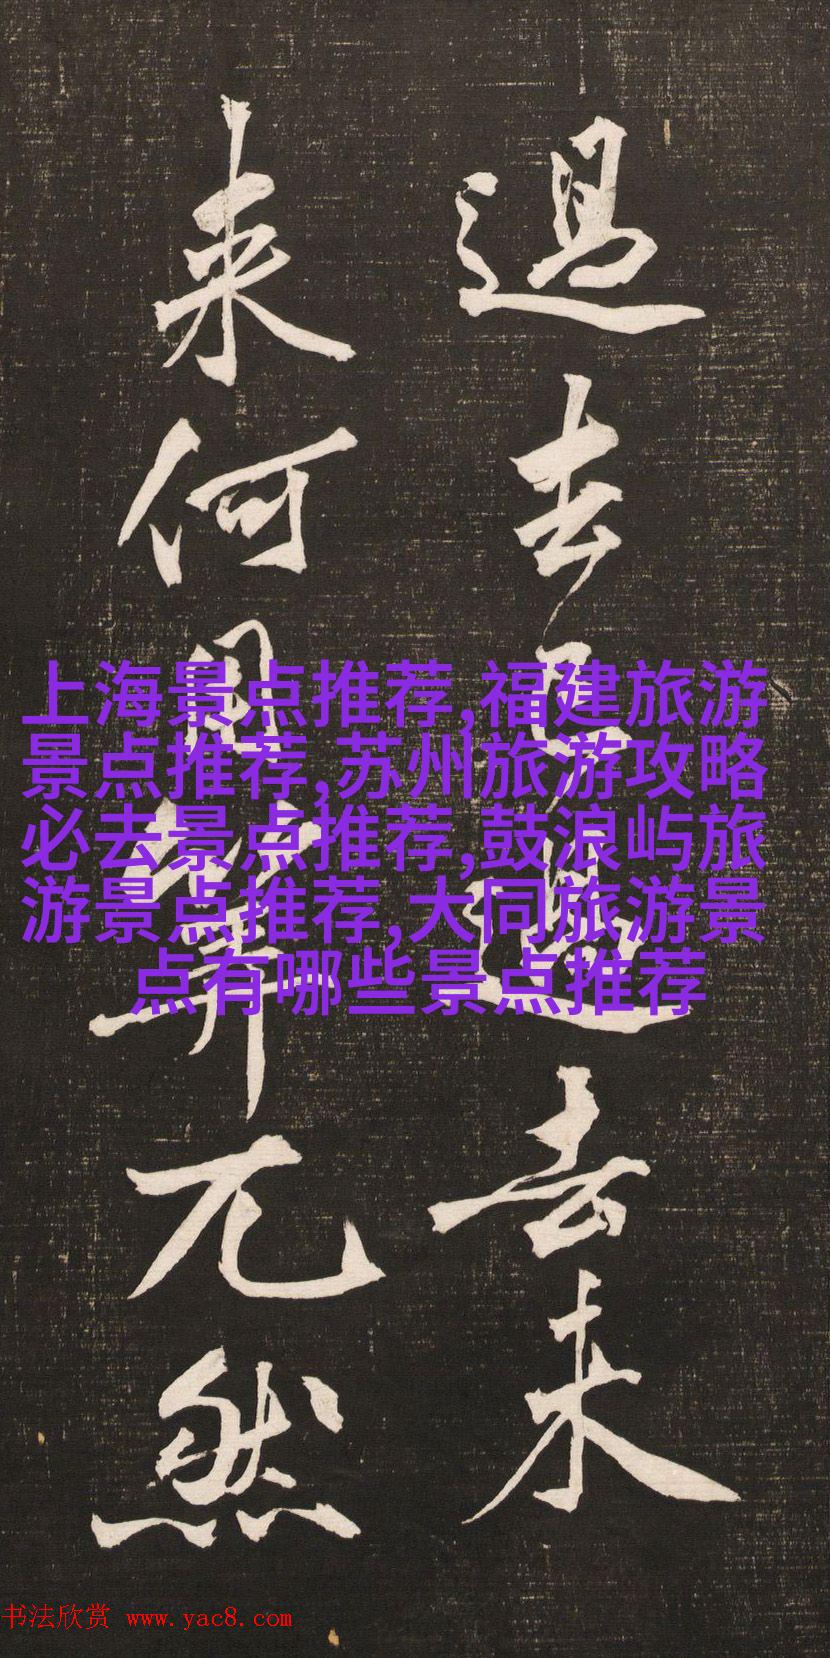 過去已過去未
来何用算兀然
上海景点推荐,福建旅游
景点推荐,苏州旅游攻略
必去景点推荐,鼓浪屿旅
游景点推荐,大同旅游景
点有哪些景点推荐
书法欣赏 www.yac8.com